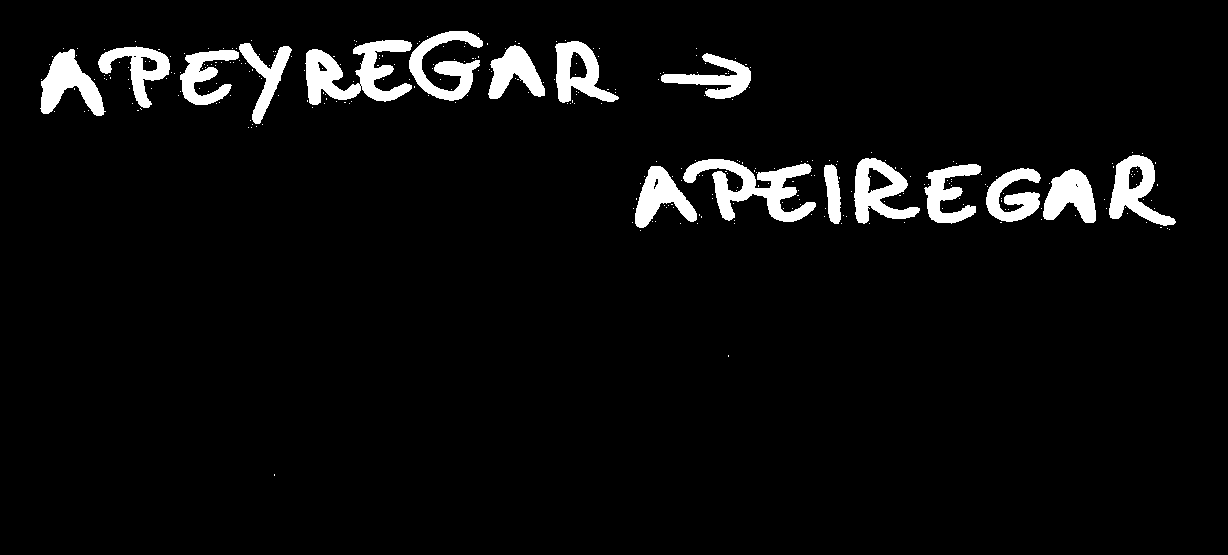 APEYREGAR →
APEIREGAR